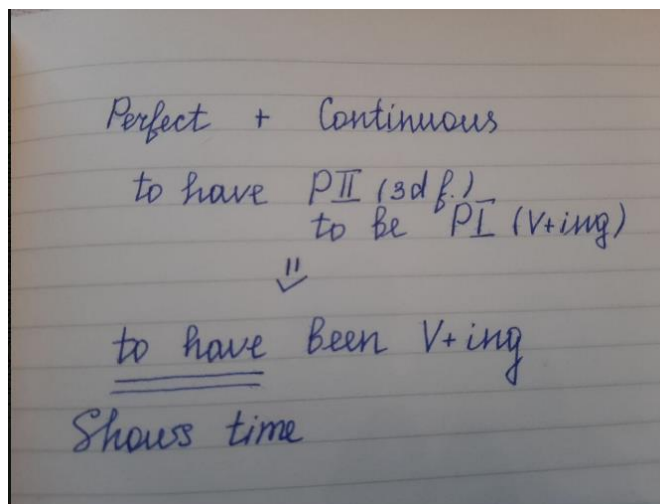 Perfect + Continuous
to have PII (3d f.)
to be PI (V+ing)
to have been V+ing
Shows time